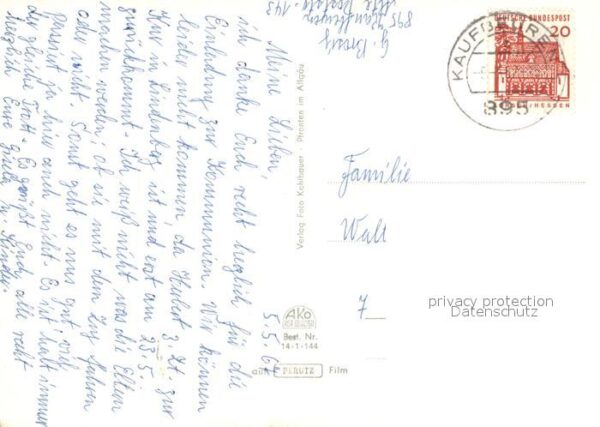 895 Kaufbeuren
5.5.67
Meine Lieben,
ich danke Euch recht herzlich für die
Einladung zur Kommunion. Wir können
leider nicht kommen, da Hubert z. Zt. zur
Kur in Lindenberg ist und erst am 23.5.
zurückkommt. Ich weiß nicht was die Eltern
machen werden, ob sie mit dem Zug fahren
oder nicht. Sonst geht es uns gut, viel
passiert ist hier auch nicht. Es ist halt immer
der gleiche Trott. Es grüßt Euch alle recht
herzlich Eure Gisela u. Kinder.
Verlag Foto Kohlbauer · Pfronten im Allgäu
AKO
Best. Nr.
14-1-144
aus PERUTZ Film
DEUTSCHE BUNDESPOST
20
HESSEN
KAUFBEUREN
895
Familie
Walt
7
privacy protection
Datenschutz